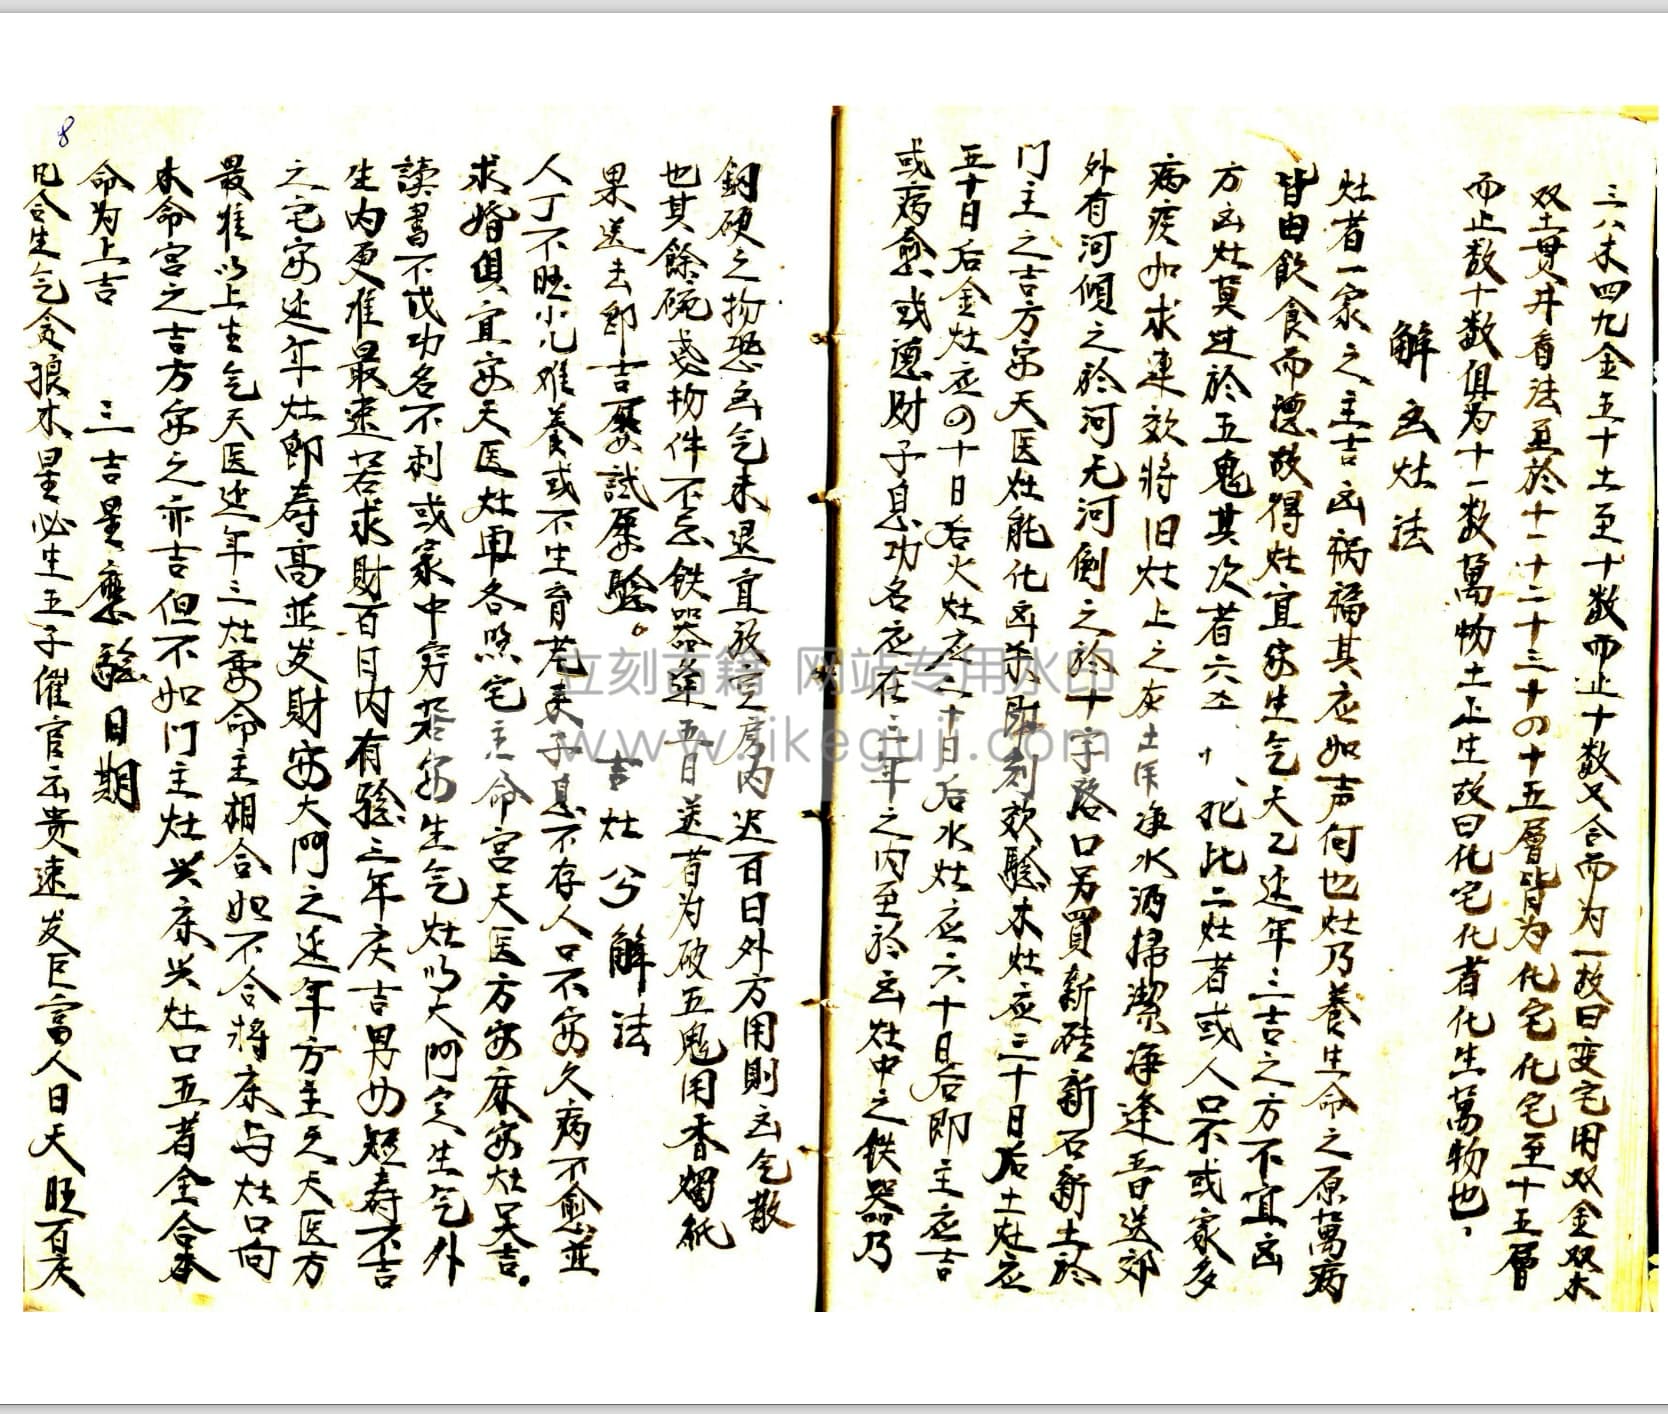 三八木四九金五十土至十数而止十数又合而为一故曰变宅用双金双木
双土贯井看法至於十一十二十三十四十五層皆为化宅化宅至十五層
而止数十数俱为十一数萬物土上生故曰化宅化者化生萬物也
解凶灶法
灶者一家之主吉凶祸福其应如声何也灶乃養生命之原萬病
皆由飲食而德故得灶宜安生气天乙延年三吉之方不宜凶
方凶灶莫过於五鬼其次者六 犯此二灶者或人口不 或家多
病疾如求速效将旧灶上之灰土 净水洒掃潔净逢吾日送郊
外有河傾之於河无河倒之於十字路口另買新砖新石新土於
门主之吉方安天医灶能化凶杀 刻效驗木灶应三十日后土灶应
五十日后金灶应四十日后火灶应二十日后水灶应六十日后即主应吉
或病愈或德财子息功名应在三年之内至於凶灶中之铁器乃
鍋硬之物恐凶气未退宜放空房内迟百日外方用則凶气散
也其餘碗盏物件不忌铁器逢五日送者为破五鬼用香燭紙
果送去即吉屡試屡驗。 吉灶兮解法
人丁不旺小儿难養或不生育若夫子息不存人口不安久病不愈並
求婚俱宜安天医灶再各照宅主命宫天医方安床安灶吴吉。
讀書不成功名不利或家中穷 若安生气灶以大门定生气外
生内更准最速若求財百日内有验三年庆吉男女短寿不吉
之宅安延年灶即寿高並发財安大門之延年方主之天医方
最准以上生气天医延年三灶要命主相合如不合将床与灶口向
本命宫之吉方安之亦吉但不如门主灶兴床兴灶口五者全合本
命为上吉 三吉星應驗日期
凡合生气贪狼木星必生五子催官 贵速发巨富人日大旺百庆
8
立刻古籍 网站专用水印
www.likeguji.com